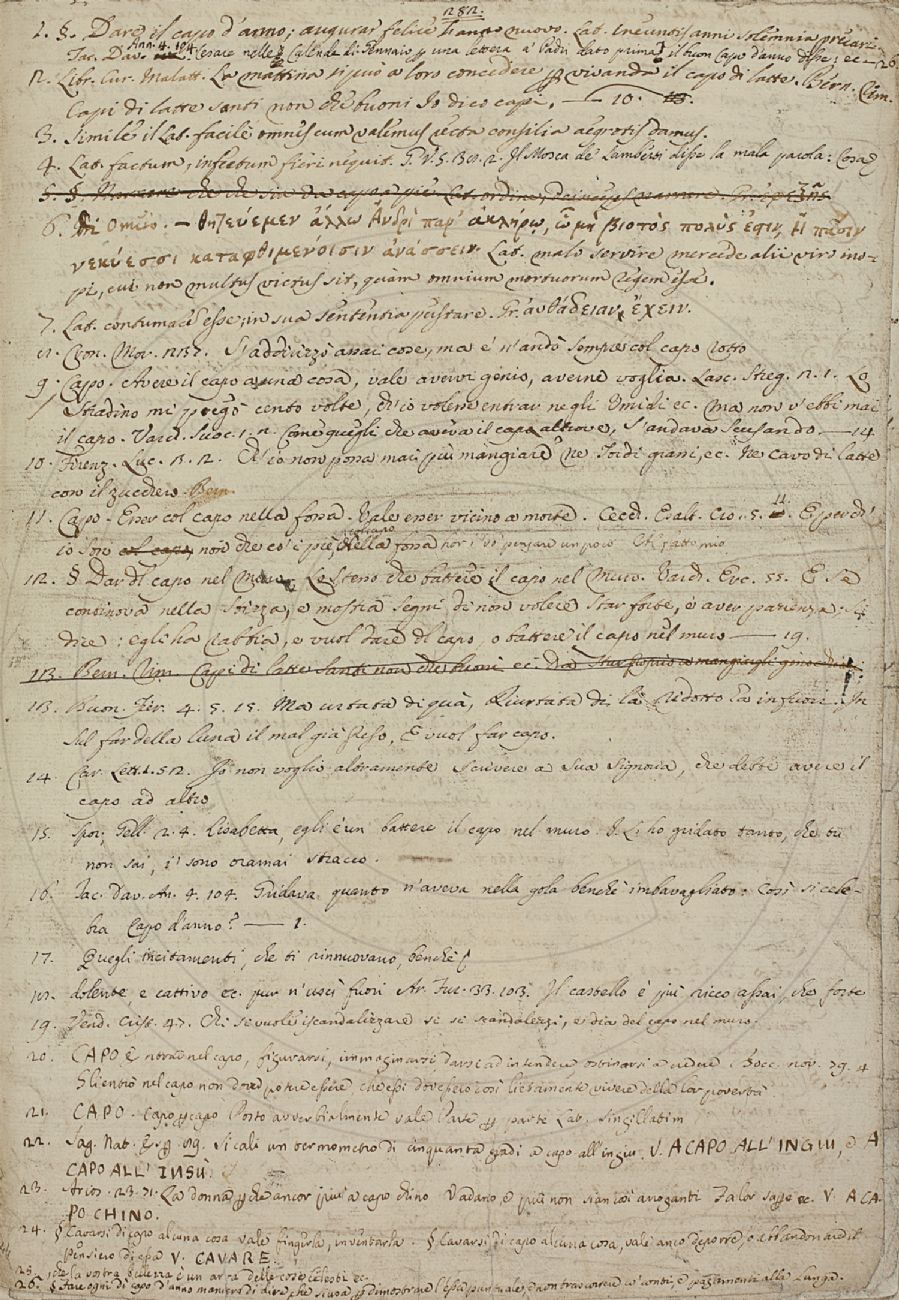 282.
1. §. Dare il capo d'anno; augurar felice l'anno nuovo. Lat. ineuntis anni solemnia precari.
Tac. Dav. Ann. 4. 104. Cesare nelle Callende di Gennaio una lettera a' Padri dato prima il buon Capo d'anno disse; ec — 26
2. Libr. Cur. Malatt. La mattina si può a loro concedere vivanda il capo di latte. Bern. Rim.
Capi di latte santi non che buoni Io dico capi. — 10.
3. Simile il Lat. facile omnes cum valemus recta consilia aegrotis damus.
4. Lat. factum, infectum fieri nequit. G. V. 5. 38. 2. Il Mosca de' Lamberti disse la mala parola: Cosa
5. §.
6. Omero. — θητευέμεν ἄλλῳ Ἀνδρὶ παρ' ἀκλήρῳ, ᾧ μὴ βιοτὸς πολὺς εἴη, Ἢ πᾶσιν
νεκύεσσι καταφθιμένοισιν ἀνάσσειν. Lat. malo servire mercede alii viro ino-
pi, cui non multus victus sit, quam omnium mortuorum regem esse.
7. Lat. contumacem esse, in sua sententia perstare. Gr. αὐθάδειαν ἔχειν.
8. Cron. Mor. 237. S'addirizzò assai cose, ma e' n'andò sempre col capo rotto
9. Capo. Avere il capo a una cosa, vale avervi genio, averne voglia. Lasc. Streg. 2. 1. Lo
Stradino mi pregò cento volte, ch'io volessi entrar negli Umidi ec. Ma non v'ebbi mai
il capo. Varch. Suoc. 1. 2. Come quegli che aveva il capo altrove, s'andava scusando — 14
10. Firenz. Luc. 3. 2. Ch'io non possa mai più mangiare nè Tordi grassi, ec. nè Cavo di latte
con il zucchero. Bern
11. Capo. Esser col capo nella fossa. Vale esser vicino a morte. Cecch. Esalt. Cro. 5. 11. E perch'
io sono col capo, non che co' i piè, nella fossa non vo' pensare un poco Al fatto mio
12. § Dar di capo nel Muro. Lo stesso che battere il capo nel Muro. Varch. Erc. 55. E se
continova nella stizza, e mostra segni di non volere star forte, e aver pazienza, si
dice: egli ha rabbia, e vuol dare di capo, o battere il capo nel muro — 19.
113. Bern. Rim. Cappi di latte santi non che buoni ec. Da
13. Buon. Fier. 4. 5. 15. Ma urtata di quà, Riurtata di là Ridotto è in fuori. In
sul far della luna il mal già preso, E vuol far capo.
14. Car. Lett. 1. 52. Io non voglio altramente scrivere a Sua Signoria, che debbe avere il
capo ad altro
15. Spor. Gell. 2. 4. Lisabetta, egli è un battere il capo nel muro. I. Lho gridato tanto, che tu
non sai, i' sono oramai stracco.
16. Tac. Dav. An. 4. 104. Gridava quanto n'aveva nella gola benchè imbavagliato: Così si cele-
bra Capo d'anno? — 1.
17. Quegli incitamenti, che ti rinnuovano, benchè
18. dolente, e cattivo ec. pur n'uscì fuori Ar. Fur. 33. 103. Il castello è più ricco assai, che forte
19. Vend. Crist. 47. Chi se vuole iscandalizzare si si scandalezzi, e dia del capo nel muro.
20. CAPO E. norme nel capo, figurarsi, immaginarsi, darsi ad intendere ostinarsi a credere. Bocc. nov. 79. 4
S'entrò nel capo non dover potere essere, che essi dovessero così lietamente vivere della lor povertà
21. CAPO. Capo capo Posto avverbialmente vale Parte parte Lat. singillatim
22. Sag. Nat. Esp. 89. Si cali un termometro di cinquanta gradi a capo all'ingiù. V. A CAPO ALL' INGIU, e A
CAPO ALL' INSÙ.
23. Arios. 23. 71. La donna, che ancor più a capo chino Vadano, e più non sian così arroganti Talor ec. V. A CA-
PO CHINO.
24. § Cavarsi di capo alcuna cosa vale fingerla, inventarla. § Cavarsi di capo alcuna cosa, vale anco deporre, o abbandonare il
pensiero di essa V. CAVARE.
25. che la vostra bellezza è un' arra delle cose celesti ec.
26. § Fare ogni dì capo d'anno maniera di dire, che si usa dimostrare l'essere puntuale, e non trascorrere co' conti, e pagamenti alla lunga.